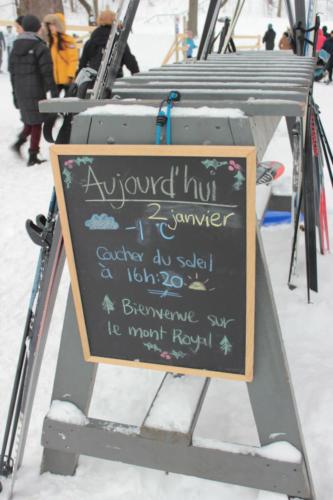 Aujourd'hui
2 janvier
-1 °C
Coucher du soleil
à 16h:20
Bienvenue sur
le mont Royal